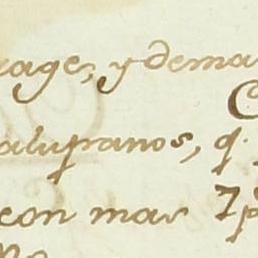 rage, y dema
C
alupranos, q.
con mas 7p